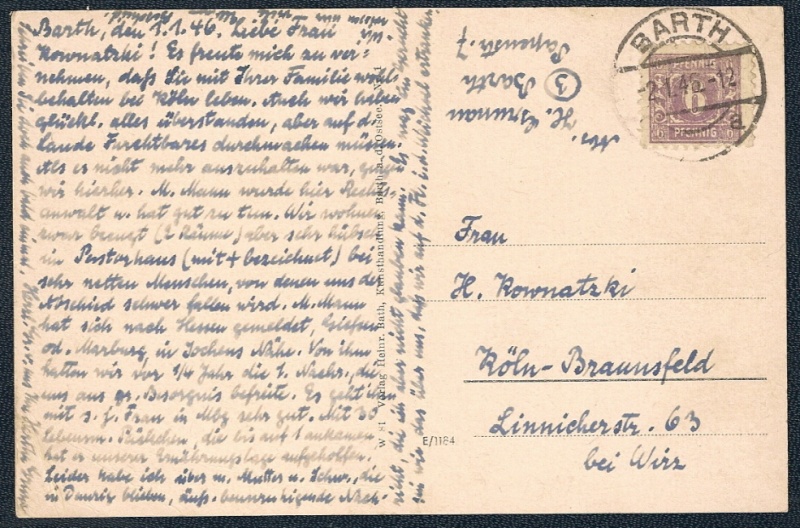 Barth, den 3.1.46. Liebe Frau
Kownatzki! Es freute mich zu ver-
nehmen, daß Sie mit Ihrer Familie wohl-
behalten bei Köln leben. Auch wir haben
glückl. alles überstanden, aber auf d.
Lande Furchtbares durchmachen müssen.
Als es nicht mehr auszuhalten war,
wir hierher. M. Mann wurde hier Rechts-
anwalt u. hat gut zu tun. Wir wohnen
zwar beengt (2 Räume) aber sehr hübsch
im Pastorhaus (mit + bezeichnet) bei
sehr netten Menschen, von denen uns der
Abschied schwer fallen wird. M. Mann
hat sich nach Hessen gemeldet, Gießen
od. Marburg, in Jochens Nähe. Von ihm
hatten wir vor 1/4 Jahr die 1. Nachr., die
uns aus gr. Besorgnis befreite. Es geht ihm
mit s. j. Frau in Mbg sehr gut. Mit 30
Lebensm. Päckchen, die bis auf 1 ankamen
hat er unserer Ernährungslage aufgeholfen.
Leider habe ich über m. Mutter u. Schw., die
in Danzig blieben, äuß. beunruhigende Nach-
richt, die ich aber nicht glauben kann.
W & I Verlag Heinr. Bath, Kunsthandlung, Barth a. d. Ostsee
E/1184
Abs.
H. Brunau
③ Barth
BARTH
-2.1.46.-12
a
PFENNIG
6
PFENNIG
Frau
H. Kownatzki
Köln-Braunsfeld
Linnicherstr. 63
bei Wirz